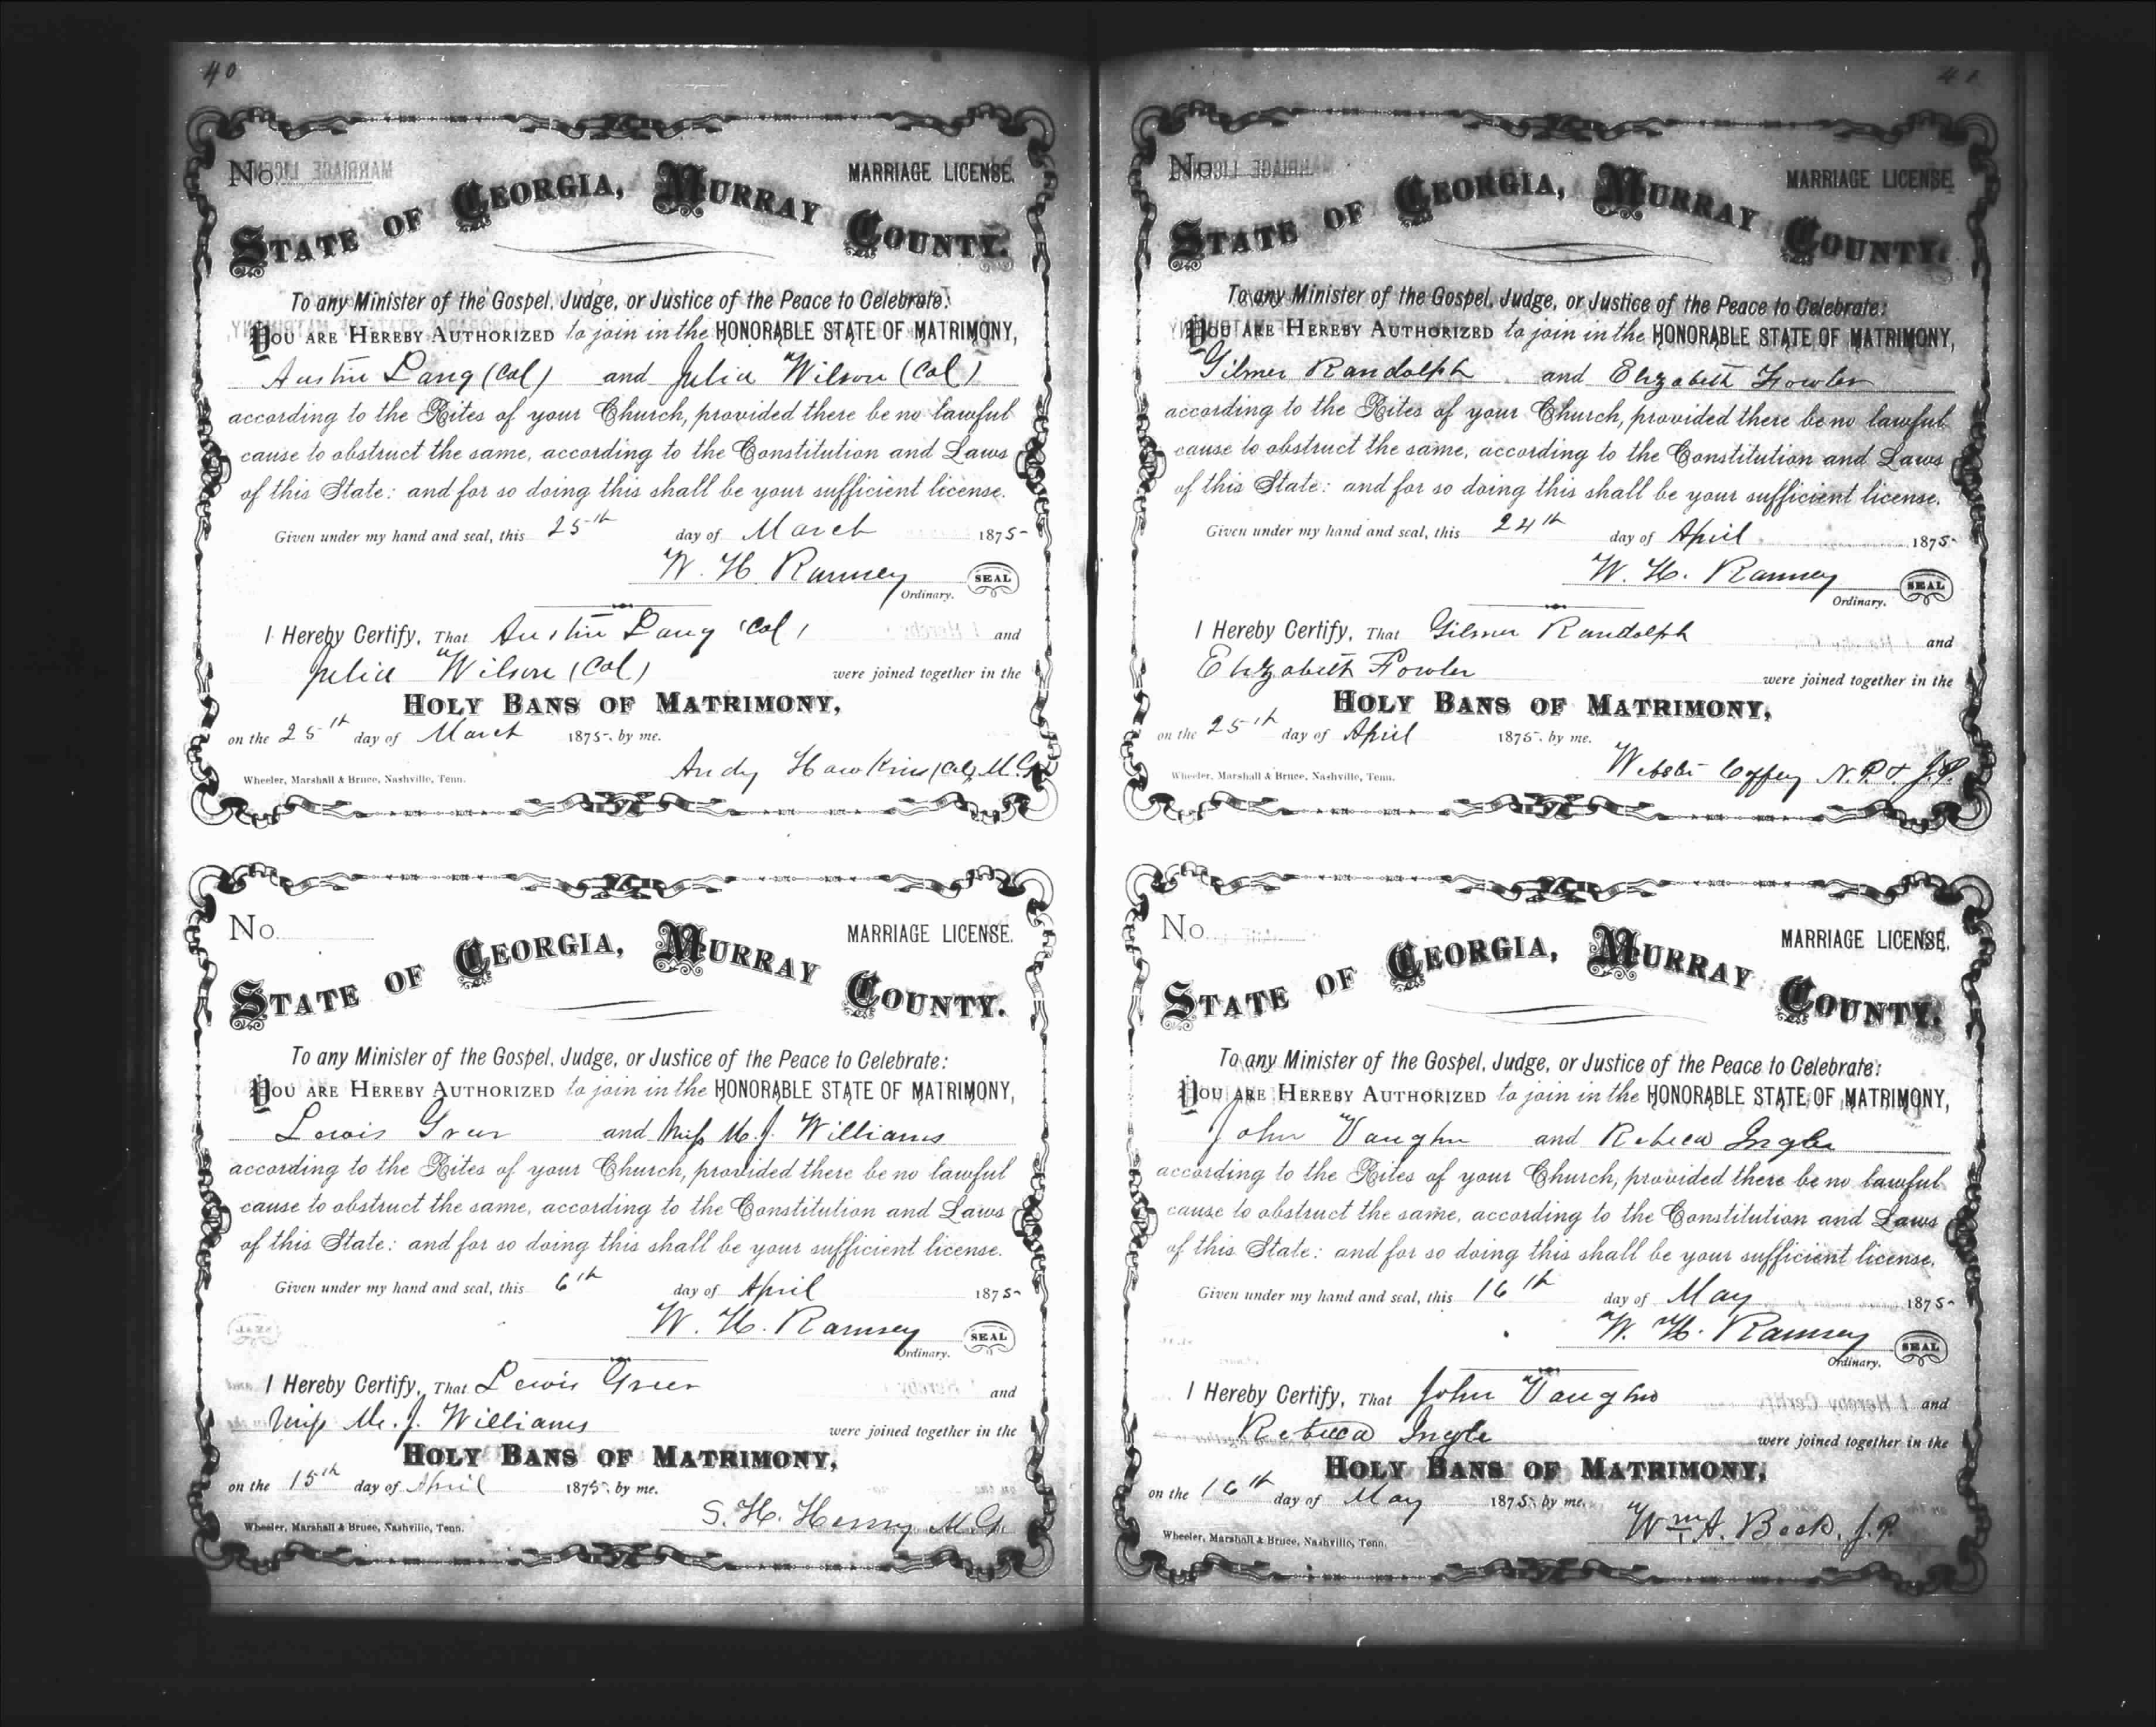 40
No.
MARRIAGE LICENSE.
STATE OF GEORGIA, MURRAY COUNTY.
To any Minister of the Gospel, Judge, or Justice of the Peace to Celebrate:
YOU ARE HEREBY AUTHORIZED to join in the HONORABLE STATE OF MATRIMONY,
Austin Lang (Col) and Julia Wilson (Col)
according to the Rites of your Church, provided there be no lawful
cause to obstruct the same, according to the Constitution and Laws
of this State: and for so doing this shall be your sufficient license.
Given under my hand and seal, this 25th day of March 1875
W. H. Ramsey SEAL
Ordinary.
I Hereby Certify, That Austin Lang (Col) and
Julia Wilson (Col) were joined together in the
HOLY BANS OF MATRIMONY,
on the 25th day of March 1875, by me.
Andy Hawkins (Col) M.G.
Wheeler, Marshall & Bruce, Nashville, Tenn.
No.
MARRIAGE LICENSE.
STATE OF GEORGIA, MURRAY COUNTY.
To any Minister of the Gospel, Judge, or Justice of the Peace to Celebrate:
YOU ARE HEREBY AUTHORIZED to join in the HONORABLE STATE OF MATRIMONY,
Lewis Greer and Miss M. J. Williams
according to the Rites of your Church, provided there be no lawful
cause to obstruct the same, according to the Constitution and Laws
of this State: and for so doing this shall be your sufficient license.
Given under my hand and seal, this 6th day of April 1875
W. H. Ramsey SEAL
Ordinary.
I Hereby Certify, That Lewis Greer and
Miss M. J. Williams were joined together in the
HOLY BANS OF MATRIMONY,
on the 15th day of April 1875, by me.
S. H. Henry M.G.
Wheeler, Marshall & Bruce, Nashville, Tenn.
41
No.
MARRIAGE LICENSE.
STATE OF GEORGIA, MURRAY COUNTY.
To any Minister of the Gospel, Judge, or Justice of the Peace to Celebrate:
YOU ARE HEREBY AUTHORIZED to join in the HONORABLE STATE OF MATRIMONY,
Gilmer Randolph and Elizabeth Fowler
according to the Rites of your Church, provided there be no lawful
cause to obstruct the same, according to the Constitution and Laws
of this State: and for so doing this shall be your sufficient license.
Given under my hand and seal, this 24th day of April 1875
W. H. Ramsey SEAL
Ordinary.
I Hereby Certify, That Gilmer Randolph and
Elizabeth Fowler were joined together in the
HOLY BANS OF MATRIMONY,
on the 25th day of April 1875, by me.
Coffey N.P. & J.P.
Wheeler, Marshall & Bruce, Nashville, Tenn.
No.
MARRIAGE LICENSE.
STATE OF GEORGIA, MURRAY COUNTY.
To any Minister of the Gospel, Judge, or Justice of the Peace to Celebrate:
YOU ARE HEREBY AUTHORIZED to join in the HONORABLE STATE OF MATRIMONY,
John Vaughn and Rebeca Ingle
according to the Rites of your Church, provided there be no lawful
cause to obstruct the same, according to the Constitution and Laws
of this State: and for so doing this shall be your sufficient license.
Given under my hand and seal, this 16th day of May 1875
W. H. Ramsey SEAL
Ordinary.
I Hereby Certify, That John Vaughn and
Rebecca Ingle were joined together in the
HOLY BANS OF MATRIMONY,
on the 16th day of May 1875, by me.
Wm. A. Beck, J.P.
Wheeler, Marshall & Bruce, Nashville, Tenn.